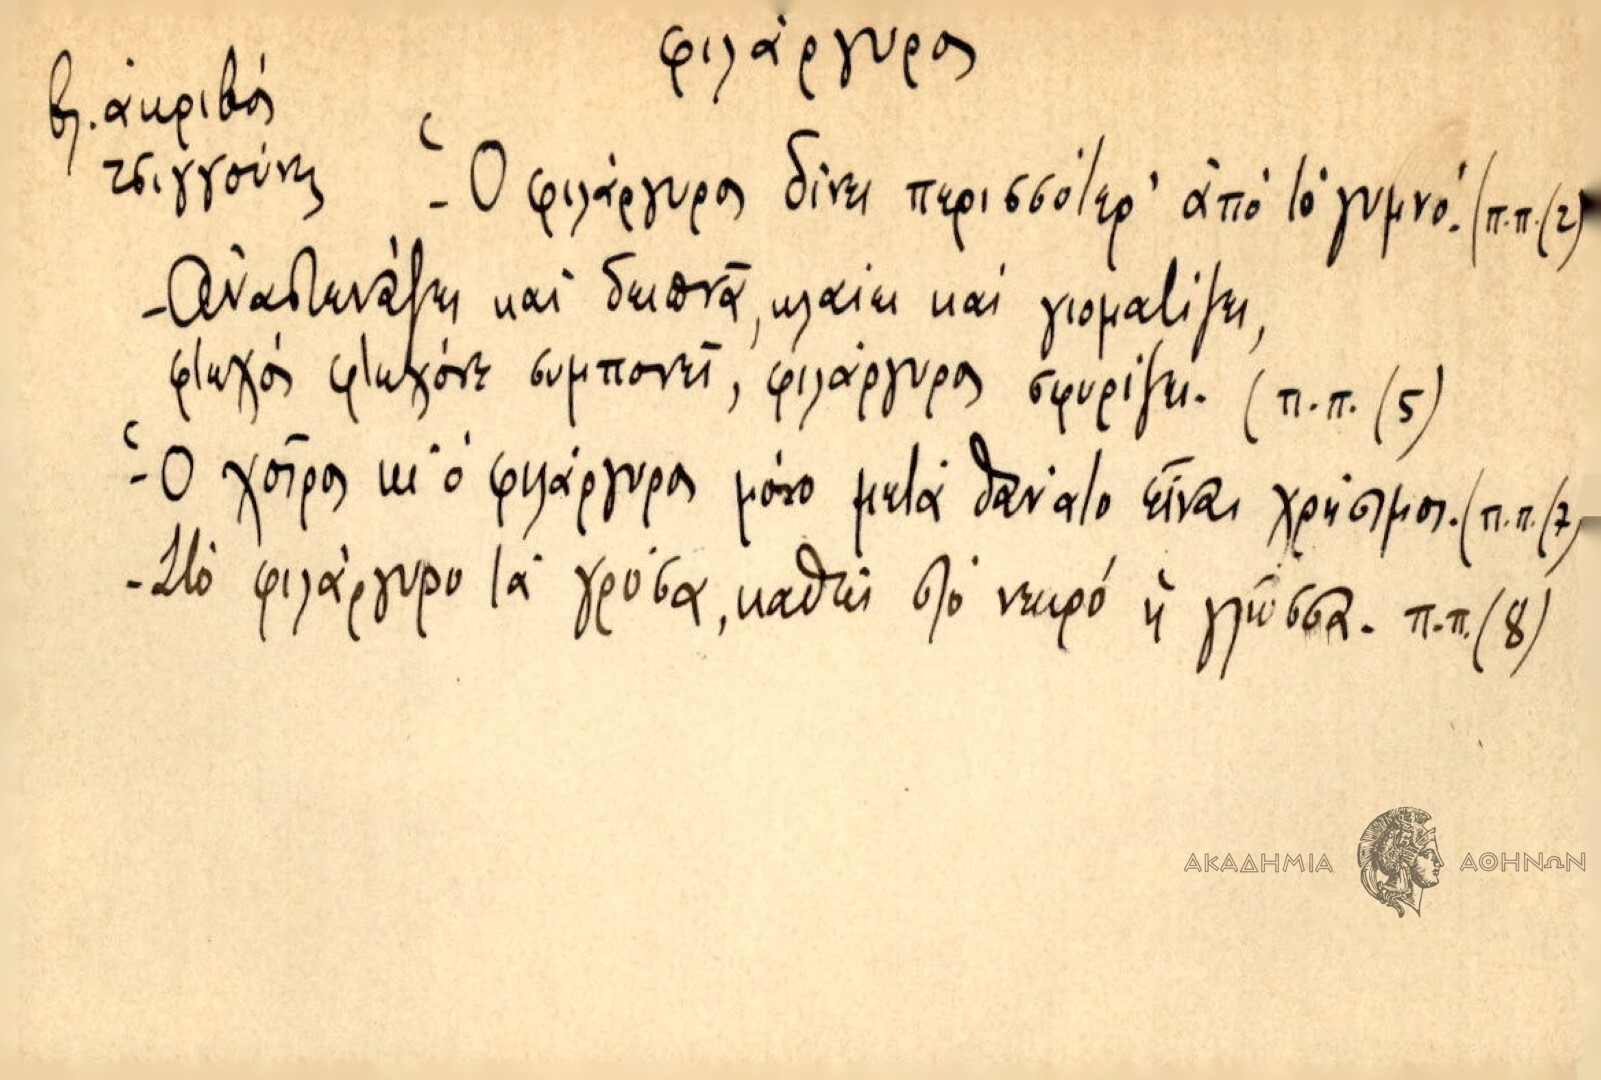 φιλάργυρος
βλ. ἀκριβός
τσιγγούνης
- Ὁ φιλάργυρος δίνει περισσότερ' ἀπό τό γυμνό. (π.π. (2)
- Ἀναστενάζει καί δειπνᾶ, κλαίει καί γιοματίζει,
φτωχός φτωχόνε συμπονεῖ, φιλάργυρος σφυρίζει. (π.π. (5)
- Ὁ χοῖρος κι ὁ φιλάργυρος μόνο μετά θάνατο εἶναι χρήσιμοι. (π.π. (7)
- Στό φιλάργυρο τά γρόσα, καθώς στό νεκρό ἡ γλῶσσα. π.π. (8)
ΑΚΑΔΗΜΙΑ ΑΘΗΝΩΝ